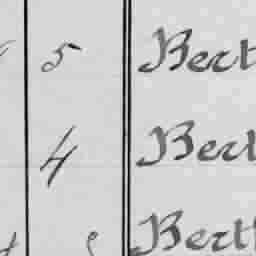 5 Bert
4 Bert
Bert